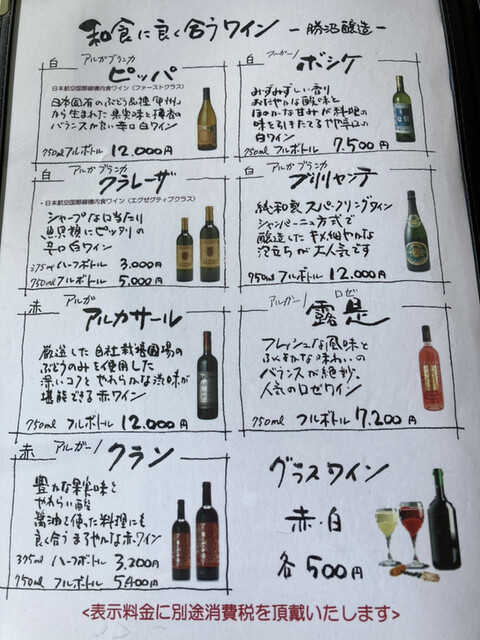 和食に良く合うワイン －勝沼醸造－
白 アルガブランカ
ピッパ
日本航空国際線機内食ワイン（ファーストクラス）
日本固有のぶどう品種「甲州」
から生まれた果実味と樽香の
バランスが良い辛口白ワイン
750ml フルボトル 12.000円
白 アルガーノ
ボシケ
みずみずしい香り
おだやかな酸味と
ほのかな甘みが料理の
味を引きたてるやや辛口の
白ワイン
750ml フルボトル 7.500円
白 アルガブランカ
クラレーザ
・日本航空国際線機内食ワイン（エグゼグティブクラス）
シャープな口当たり
魚貝類にピッタリの
辛口白ワイン
375ml ハーフボトル 3.000円
750ml フルボトル 5.000円
白 アルガブランカ
ブリリャンテ
純和製スパークリングワイン
シャンパーニュ方式で
醸造したキメ細やかな
泡立ちが大人気です
750ml フルボトル 12.000円
赤 アルガ
アルカサール
厳選した自社栽培圃場の
ぶどうのみを使用した
深いコクとやわらかな渋味が
堪能できる赤ワイン
750ml フルボトル 12.000円
アルガーノ ロゼ
露是
フレッシュな風味と
ふくよかな味わいの
バランスが絶妙.
人気のロゼワイン
750ml フルボトル 7.200円
赤 アルガーノ
クラン
豊かな果実味と
やわらかい酸
醤油を使った料理にも
良く合うまろやかな赤ワイン
375ml ハーフボトル 3.200円
750ml フルボトル 5.400円
グラスワイン
赤・白
各500円
<表示料金に別途消費税を頂戴いたします>